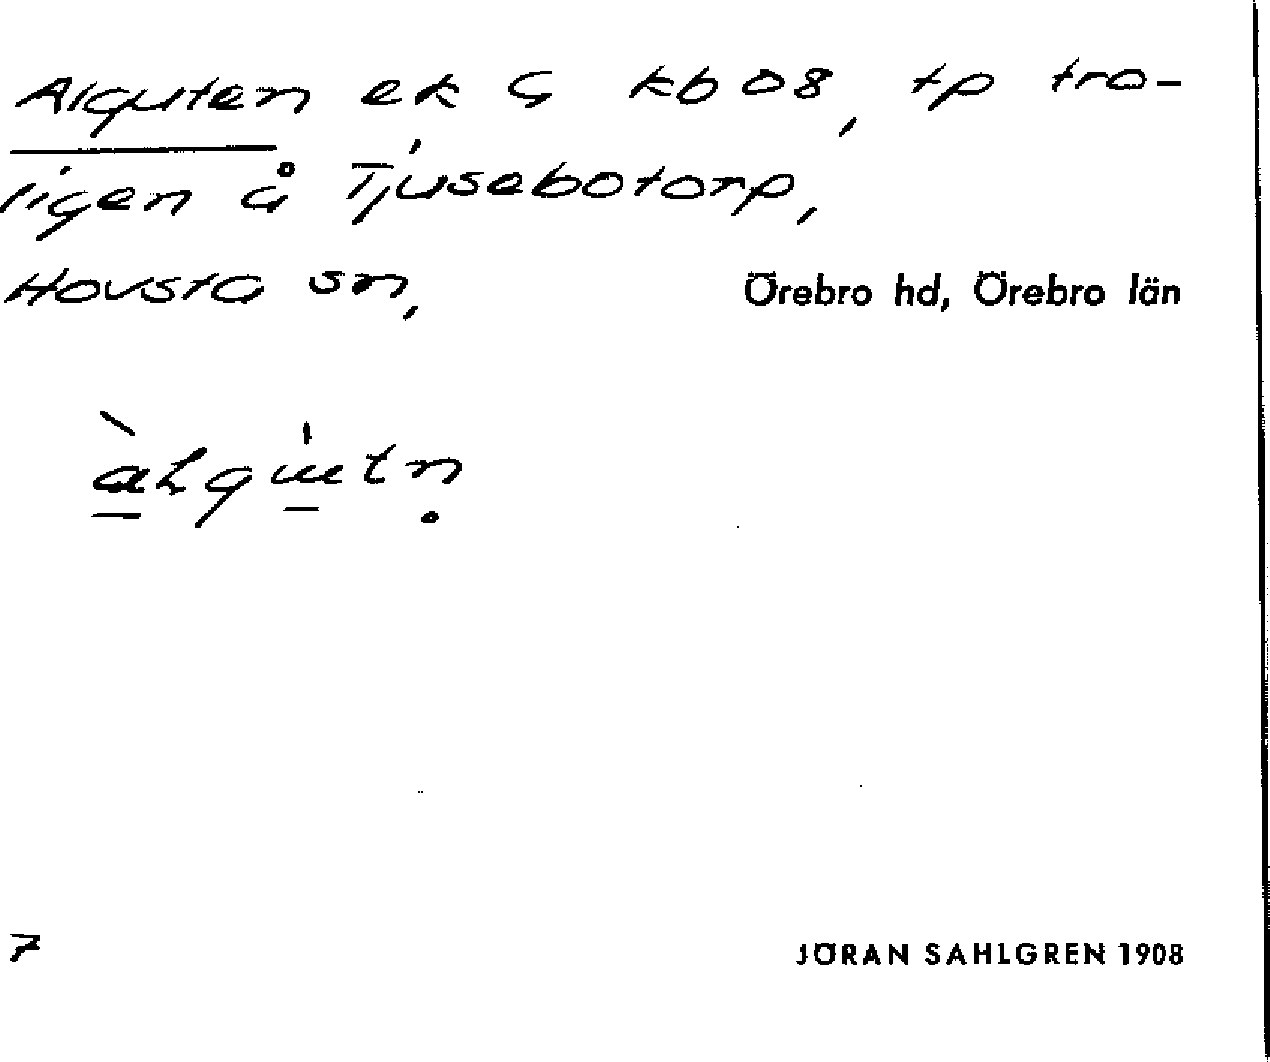 Alguten ek G kb 08, tp tro-
ligen å Tjusebotorp,
Hovsta sn, Örebro hd, Örebro län
7
JÖRAN SAHLGREN 1908